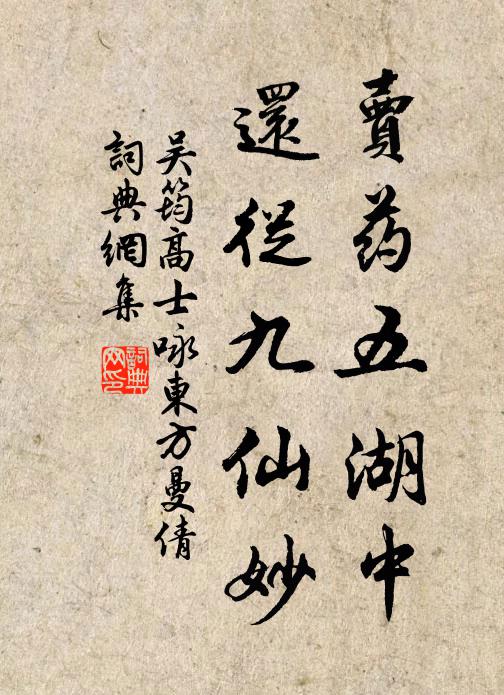 賣药五湖中
還從九仙妙
吴筠高士咏東方曼倩
詞典網集
詞典
网印